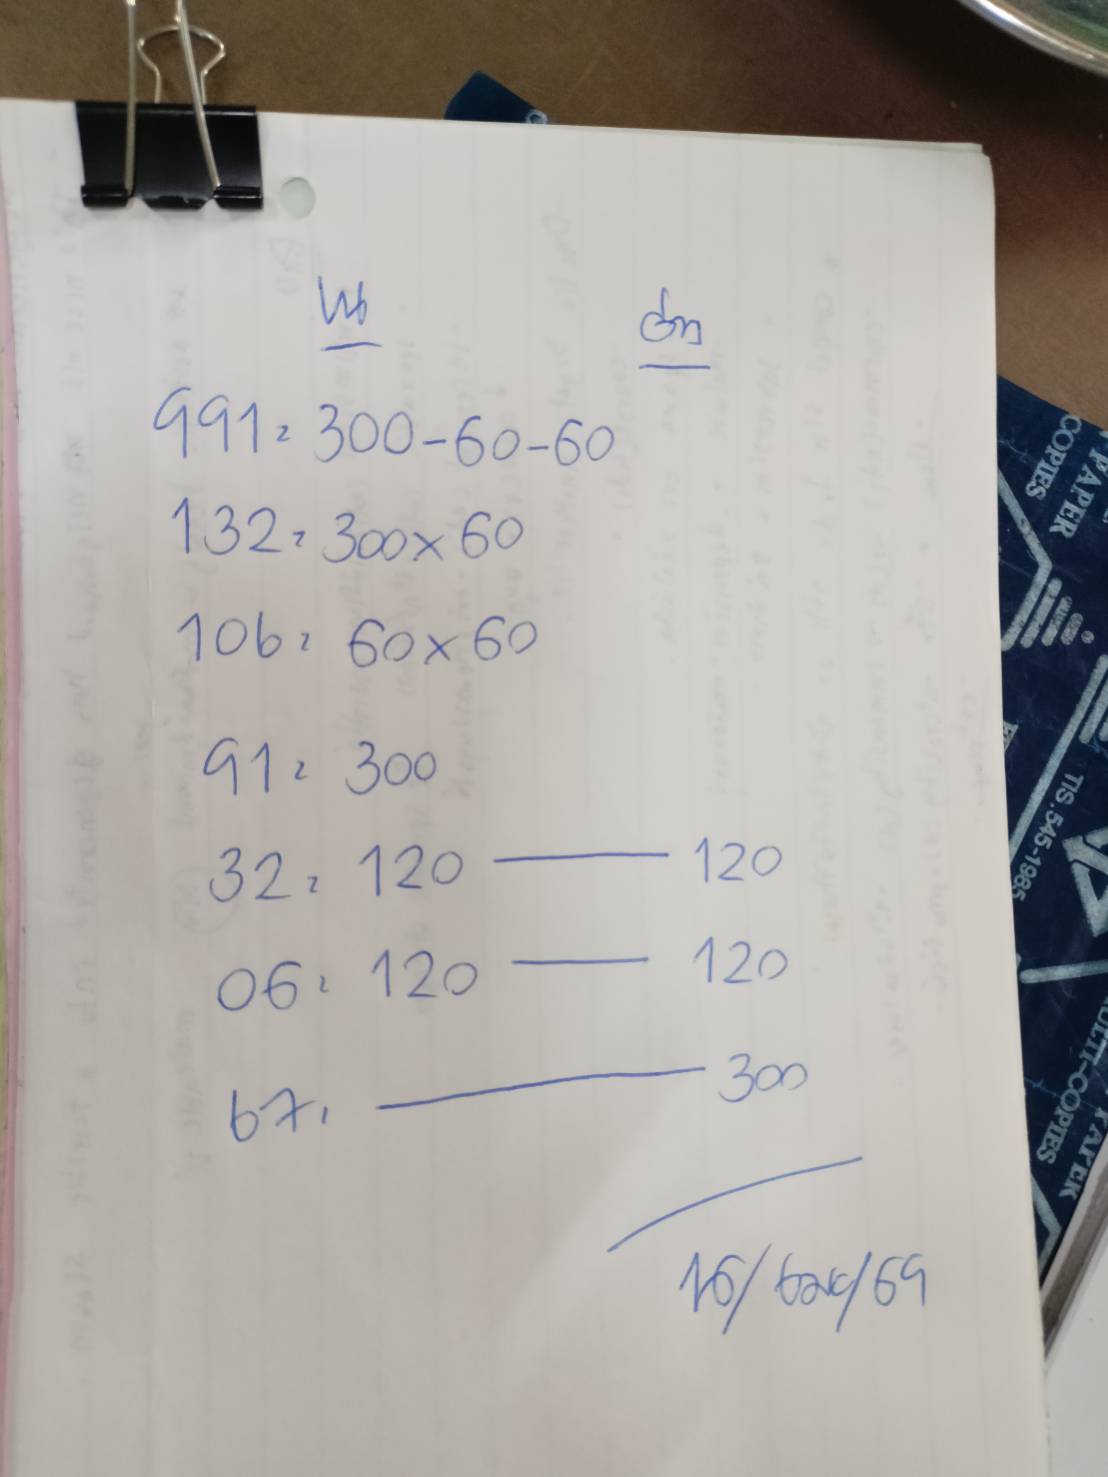 บน ล่าง
991 = 300-60-60
132 = 300x60
106 = 60x60
91 = 300
32 = 120 — 120
06 = 120 — 120
67 = — 300
16/เมย/69
PAPER
COPIES
TIS.545-1985
MULTI-COPIES
PAPER